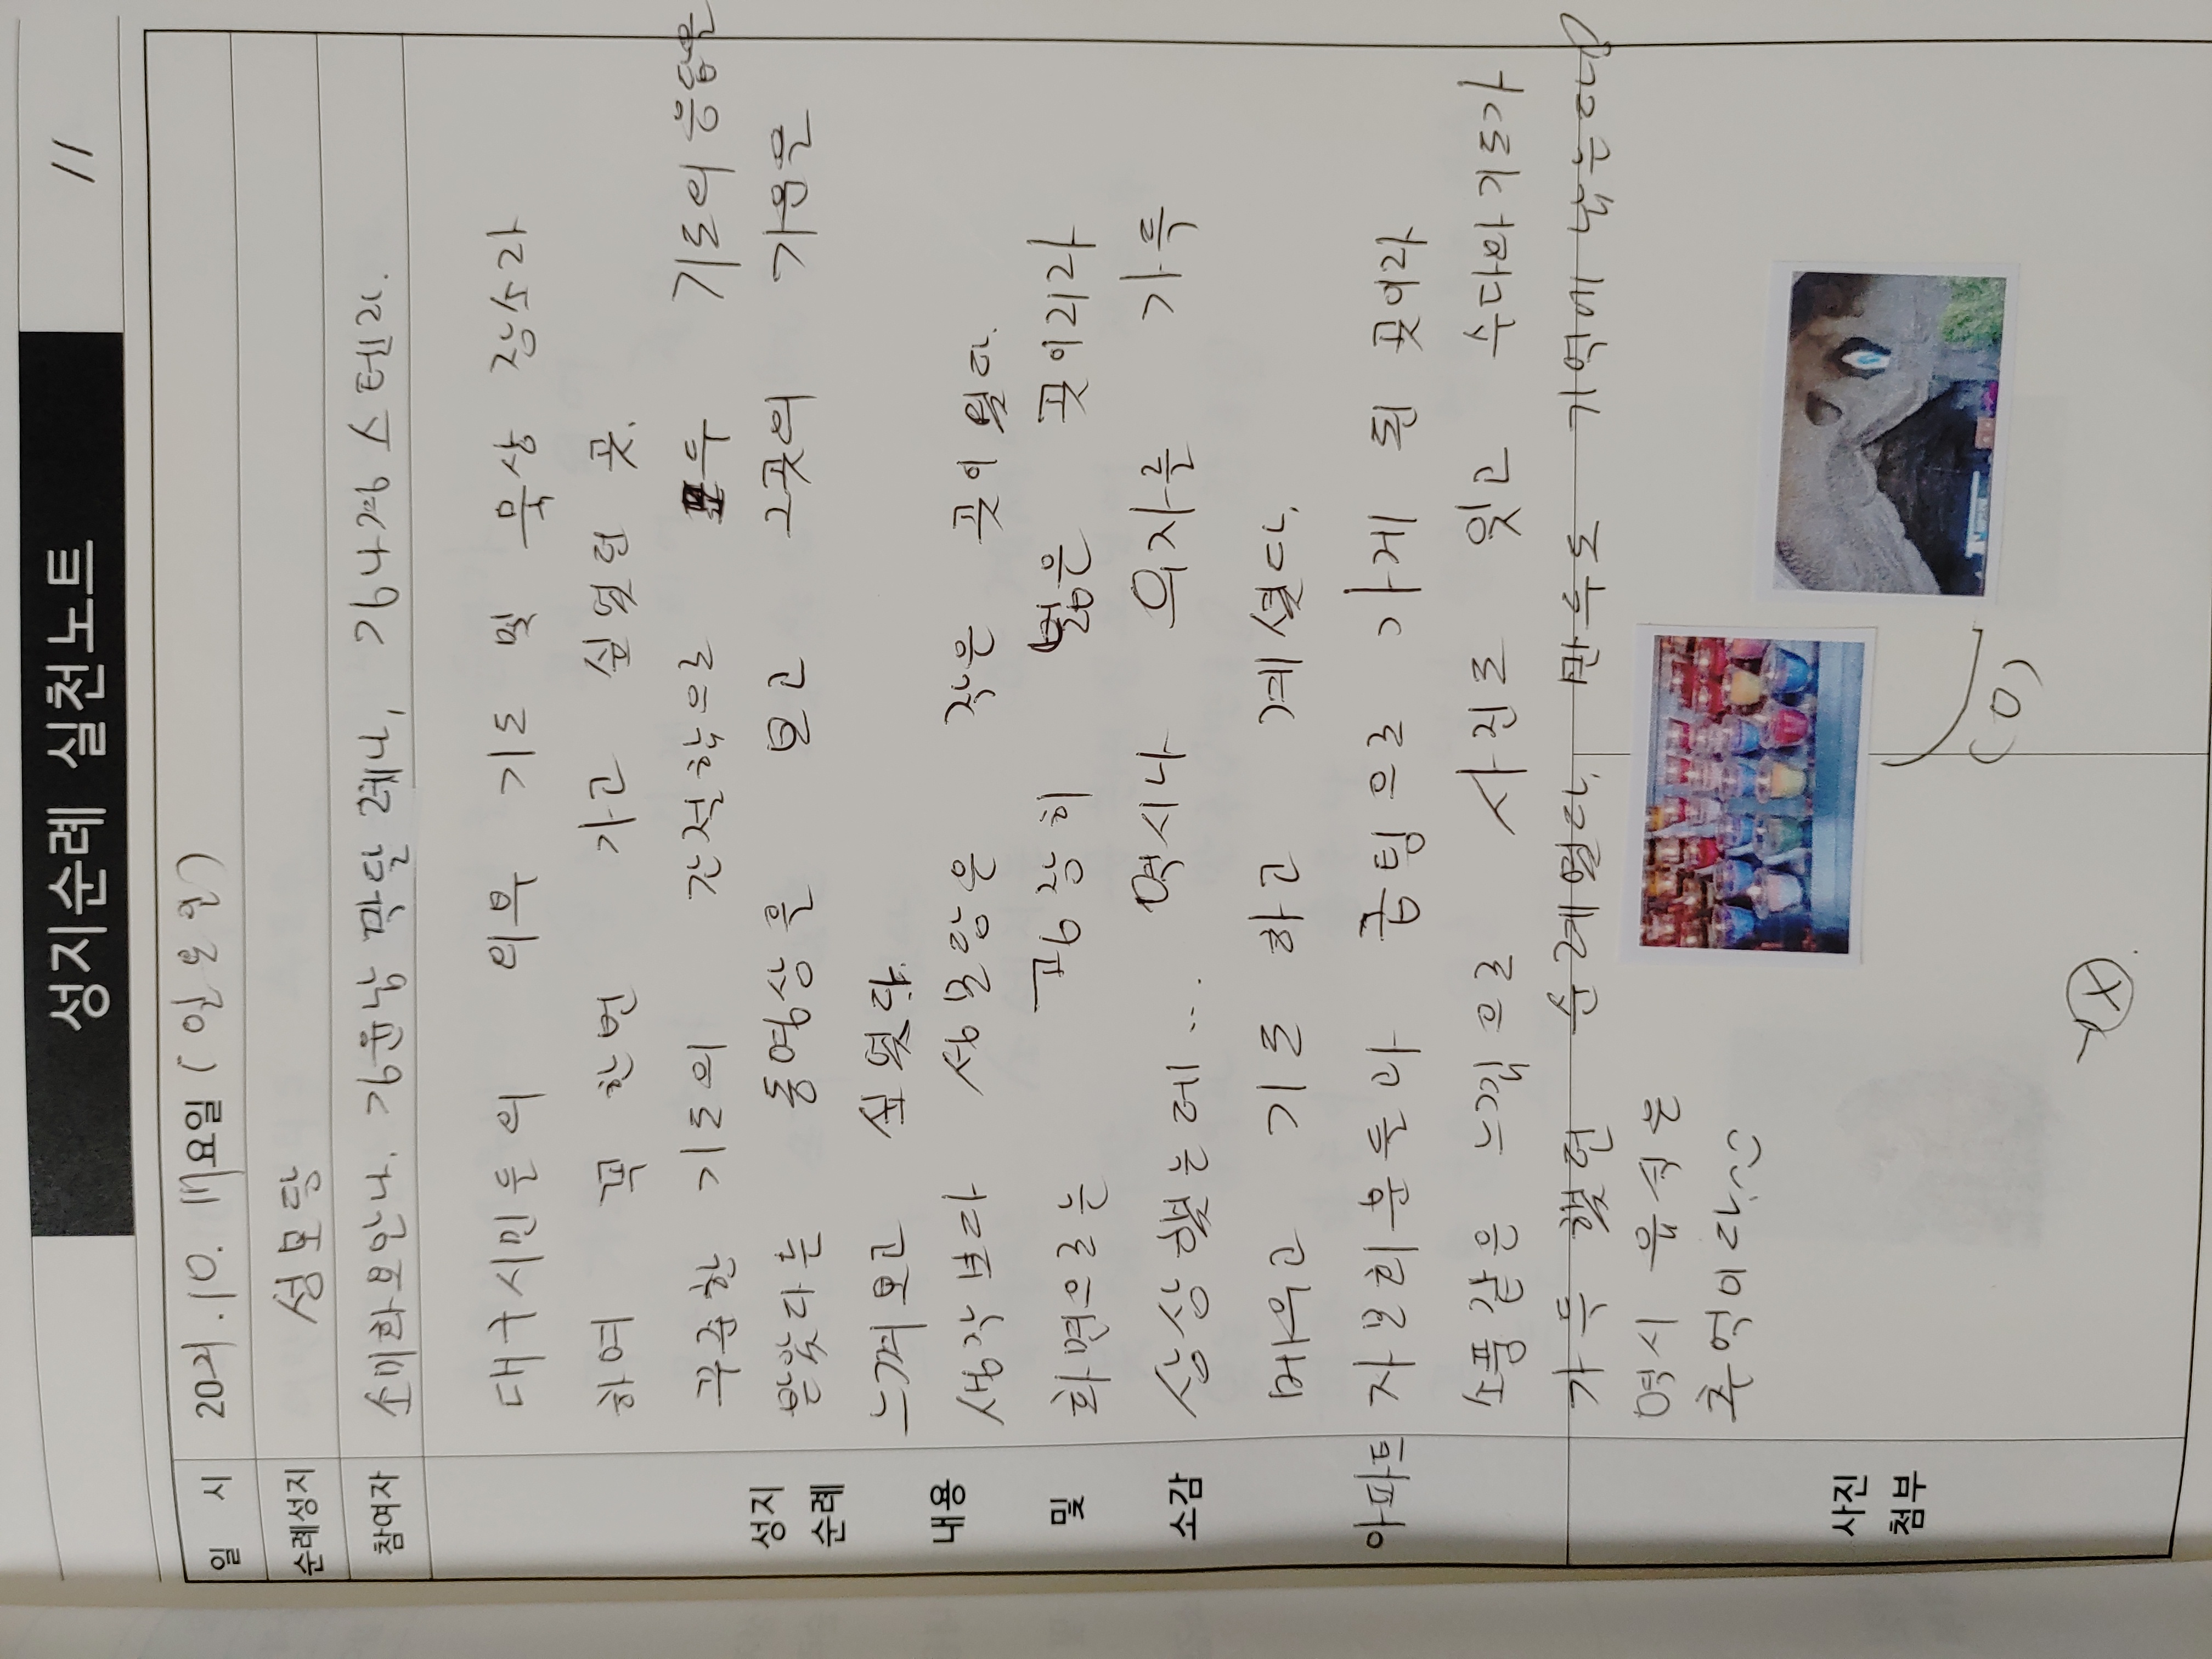 성지순례 실천노트 11
일 시 2021.10.17요일 (일요일)
순례성지 성모당
참여자 소미화요안나. 김윤남 막달레나, 김나경 스텔라.
대구시민들의 외부 기도 및 묵상 장소라
하여 꼭 한번 가고 싶었던 곳.
꾸준한 기도의 간절함으로 모두 기도의 응답을
받았다는 동영상을 보고 그곳의 기운을
느껴보고 싶었다.
생각보다 성모당은 작은 곳이였다.
화면으로는 굉장히 넓은 곳이리라
상상했는데... 역시나 의자를 가득
메우고 기도 하고 계셨다.
아파트 자모회분들과 급팅으로 가게 된 곳이라
소풍같은 느낌으로 사진도 찍고 수다와 기도가
가득했던 순례였다. 만두도 기억에 남는다!
역시 음식은
추억이다.^^
성지
순례
내용
및
소감
사진
첨부
(O)
X